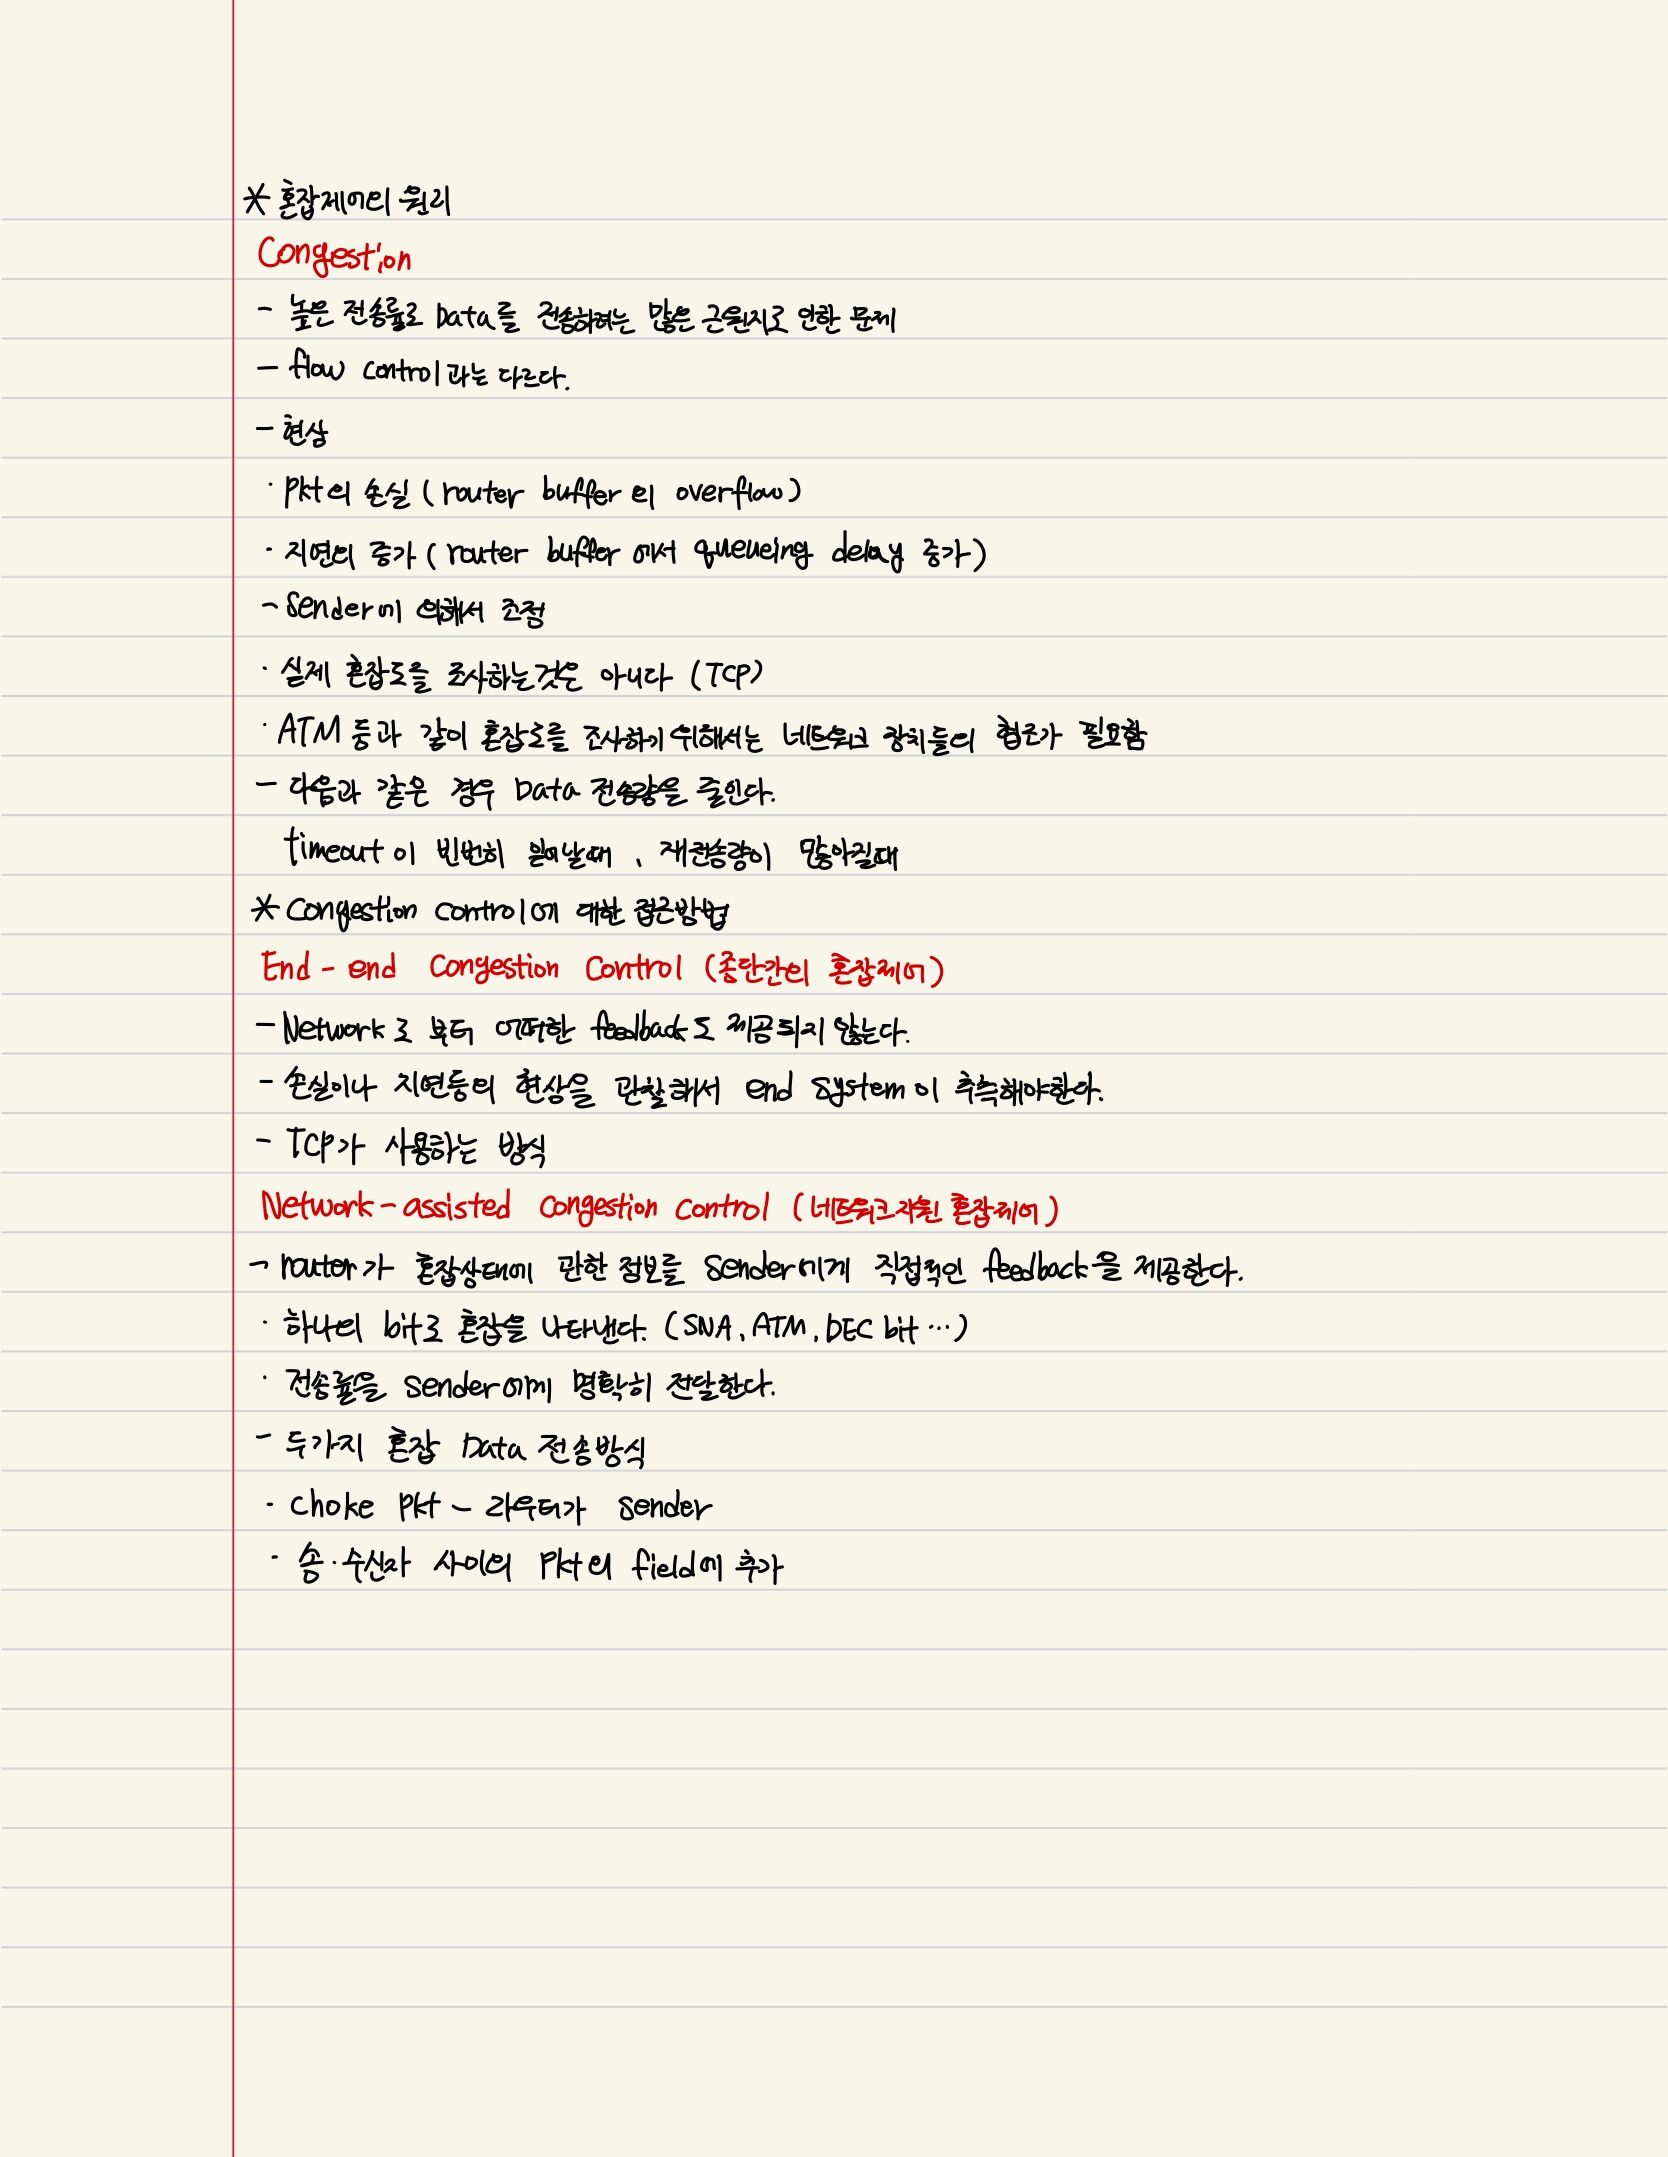 * 혼잡제어의 원리
Congestion
- 높은 전송률로 Data를 전송하려는 많은 근원지로 인한 문제
- flow control과는 다르다.
- 현상
· pkt의 손실 (router buffer의 overflow)
· 지연의 증가 (router buffer에서 queueing delay 증가)
- Sender에 의해서 조절
· 실제 혼잡도를 조사하는것은 아니다 (TCP)
· ATM 등과 같이 혼잡도를 조사하기 위해서는 네트워크 장치들의 협조가 필요함
- 다음과 같은 경우 Data 전송량을 줄인다.
timeout이 빈번히 일어날때, 재전송량이 많아질때
* Congestion control에 대한 접근방법
End-end Congestion Control (종단간의 혼잡제어)
- Network로 부터 어떠한 feedback도 제공되지 않는다.
- 손실이나 지연등의 현상을 관찰해서 end system이 추측해야한다.
- TCP가 사용하는 방식
Network-assisted Congestion control (네트워크 지원 혼잡제어)
- router가 혼잡상태에 관한 정보를 Sender에게 직접적인 feedback을 제공한다.
· 하나의 bit로 혼잡을 나타낸다. (SNA, ATM, DEC bit ...)
· 전송률을 sender에게 명확히 전달한다.
- 두가지 혼잡 Data 전송방식
· Choke Pkt - 라우터가 Sender
· 송·수신자 사이의 Pkt의 field에 추가